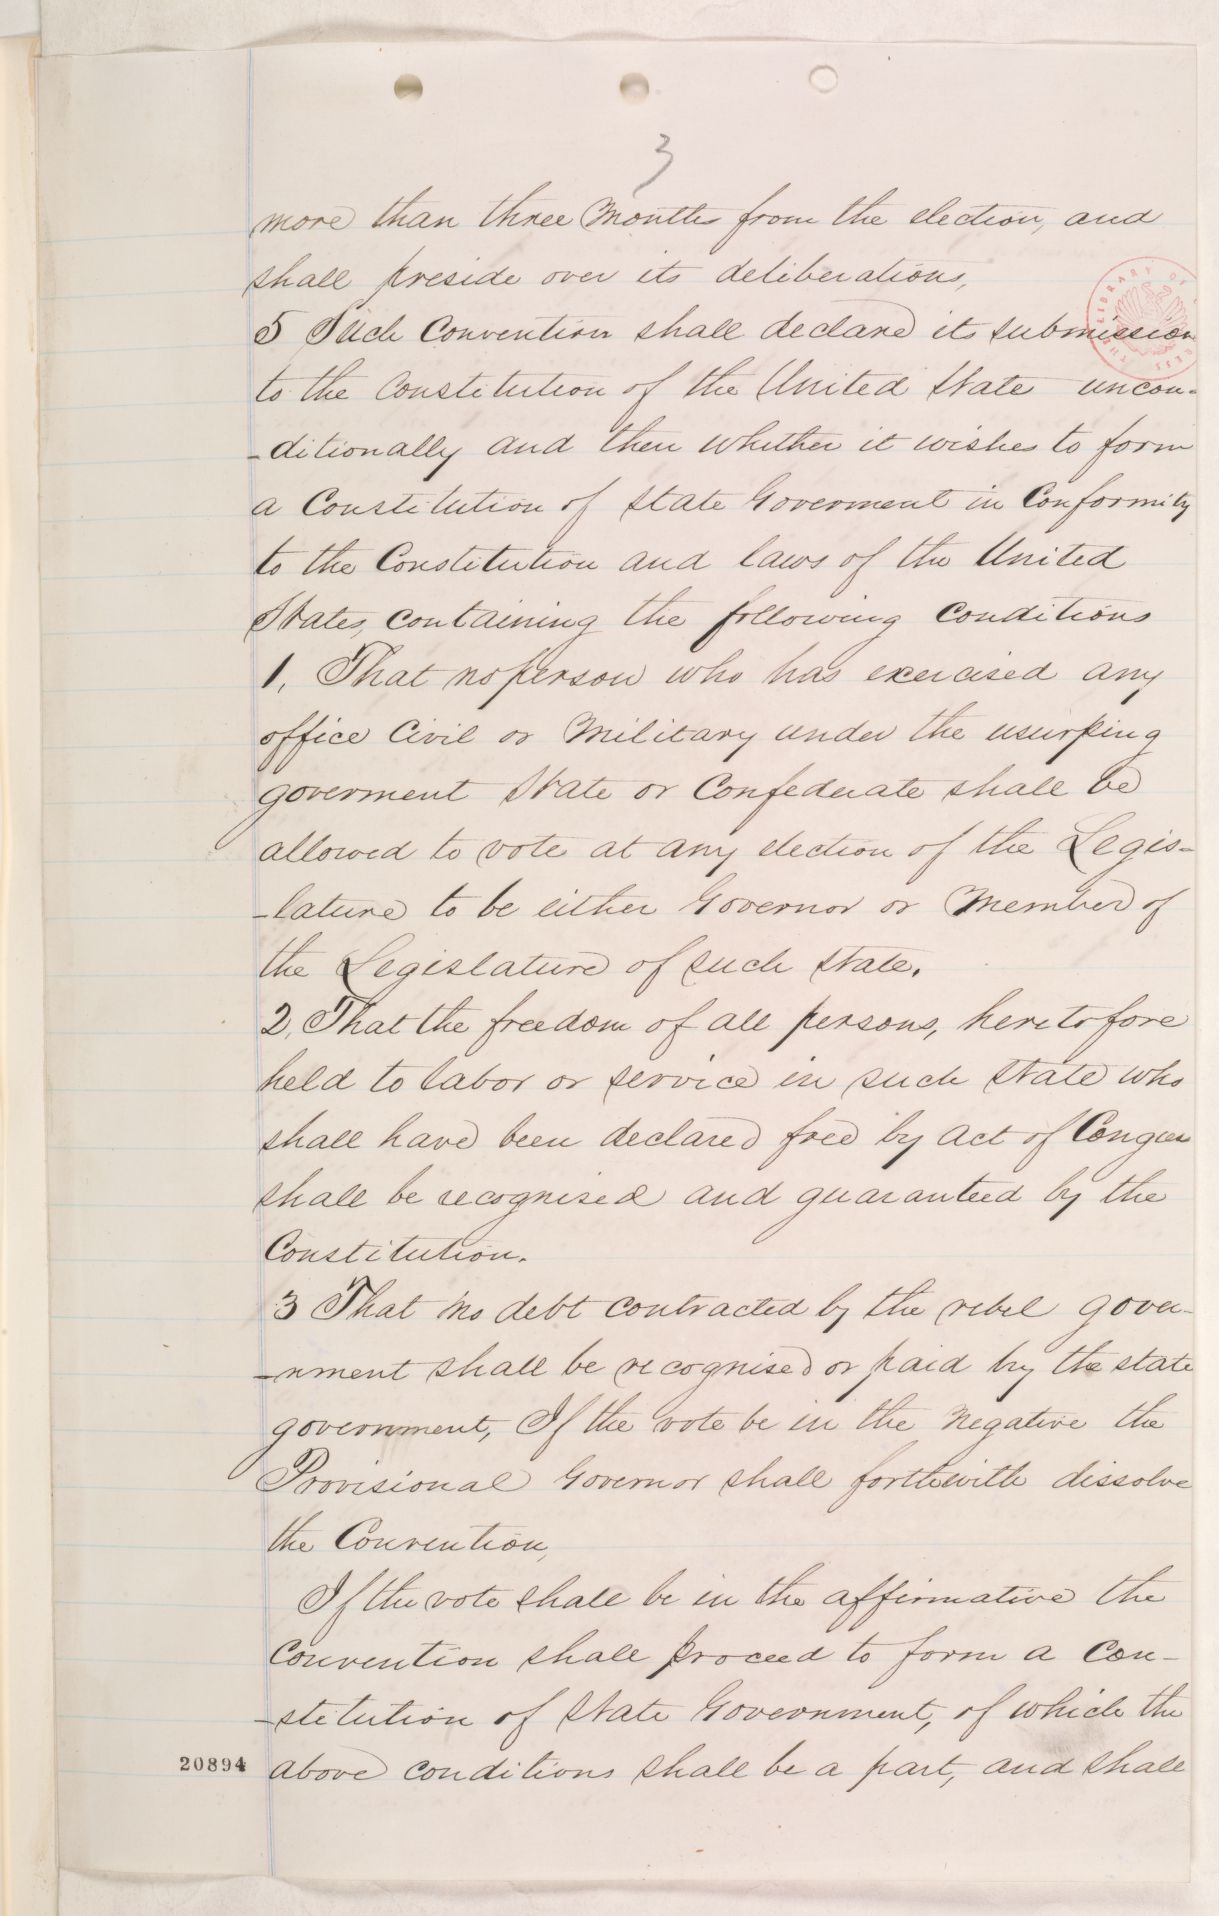 3
more than three Months from the election, and
shall preside over its deliberations,
5 Such Convention shall declare its submission
to the Constitution of the United State uncon-
-ditionally and then whether it wishes to form
a Constitution of State Goverment in Conformity
to the Constitution and laws of the United
States, containing the following Conditions
1, That no person who has exercised any
office Civil or Military under the usurping
goverment State or Confederate shall be
allowed to vote at any election of the Legis-
-lature to be either Governor or Member of
the Legislature of such State.
2, That the freedom of all persons, heretofore
held to labor or service in such State who
shall have been declared free by Act of Congress
shall be recognised and guaranteed by the
Constitution.
3 That no debt contracted by the rebel gover-
-nment shall be recognised or paid by the state
government, If the vote be in the Negative the
Provisional Governor shall forthwith dissolve
the Convention,
If the vote shall be in the affirmative the
Convention shall proceed to form a Con-
-stitution of State Government, of which the
20894 above conditions shall be a part, and shall
THE LIBRARY OF CONGRESS